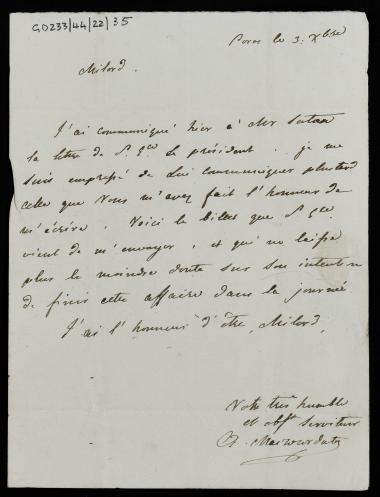 GD233/44/22/35
Poros le 3: Xbre
Milord.
J'ai communiqué hier à Mr
la lettre de S. Exce Le président. je me
suis empressé de lui communiquer plus tard
celle que Vous m'avez fait l'honneur de
m'écrire. Voici le billet que S. Exce
vient de m'envoyer, et qui ne laisse
plus le moindre doute sur son intention
de finir cette affaire dans la journée
J'ai l'honneur d'être, Milord,
Votre très humble
et obst serviteur